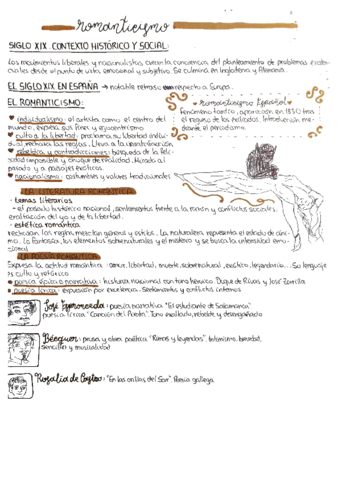 romanticismo
SIGLO XIX. CONTEXTO HISTÓRICO Y SOCIAL:
Los movimientos liberales y nacionalistas crean la conciencia del planteamiento de problemas
desde el punto de vista emocional y subjetivo. Se culmina en Inglaterra y Alemania.
EL SIGLO XIX EN ESPAÑA → notable retraso respecto a Europa.
EL ROMANTICISMO:
Romanticismo Español
fenómeno tardío, aparición en 1830 tras
el regreso de los exiliados. Introducción
el periodismo.
individualismo: el artista como el centro del
mundo, expresa sus fines y egocentrismo
culto a la libertad: proclama su libertad
rechaza las reglas. Lleva a la
rebeldía y contradicciones: búsqueda de la
imposible y choque de realidad. Mirada al
pasado y a paisajes exóticos.
nacionalismo: costumbres y valores tradicionales
LA LITERATURA ROMÁNTICA
- temas literarios
→ el pasado histórico nacional, sentimientos frente a la razón y conflictos sociales,
exaltación del yo y de la libertad.
- estética romántica
rechazan las reglas, mezclan géneros y estilos. La naturaleza representa el estado de
La fantasía, los elementos sobrenaturales y el misterio y se busca la intensidad
LA POESÍA ROMÁNTICA
Expresa la actitud romántica: amor, libertad, muerte, sobrenatural, exótico, legendario... Su lenguaje
es culto y retórico
poesía épica o narrativa: historia nacional Duque de Rivas y José Zorrilla
poesía lírica: expresión por excelencia. Sentimientos y conflictos internos
José Espronceda: poesía narrativa "El estudiante de Salamanca"
poesía lírica: "Canción del Pirata". Tono exaltado, rebelde y desengañado
Bécquer: prosa y obra poética "Rimas y leyendas". Intimismo,
sencillez y musicalidad
Rosalía de Castro: "En las orillas del Sar". Poesía gallega